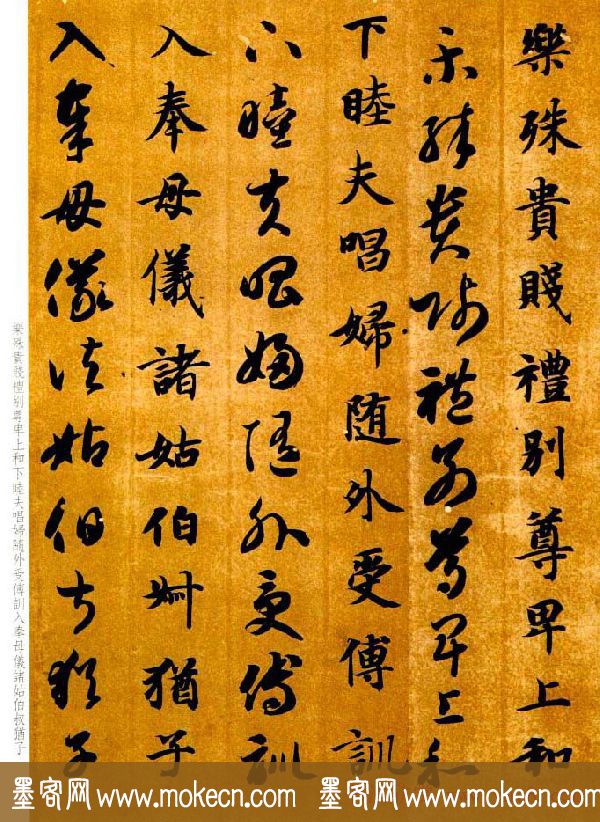 樂殊貴賤禮別尊卑上和
樂殊貴賤禮別尊卑上和
下睦夫唱婦随外受傅訓
下睦夫唱婦随外受傅訓
入奉母儀諸姑伯叔猶子
入奉母儀諸姑伯叔猶子
樂殊貴賤禮別尊卑上和下睦夫唱婦随外受傅訓入奉母儀諸姑伯叔猶子
墨客网 www.mokecn.com 墨客网 www.mokecn.com